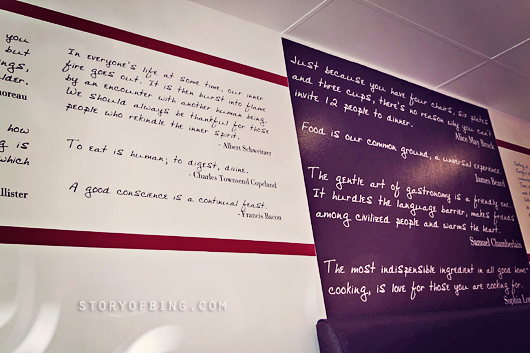 you
but
ngs,
lder.
horeau
how
g is
which
llister
In everyone's life at some time, our inner
fire goes out. It is then burst into flame
by an encounter with another human being.
We should always be thankful for those
people who rekindle the inner spirit.
- Albert Schweitzer
To eat is human; to digest, divine.
- Charles Townsend Copeland
A good conscience is a continual feast.
-Francis Bacon
Just because you have four chairs, six plates
and three cups, there's no reason why you can't
invite 12 people to dinner.
Alice May Brock
Food is our common ground, a universal experience.
James Beard
The gentle art of gastronomy is a friendly one.
It hurdles the language barrier, makes friends
among civilized people and warms the heart.
Samuel Chamberlain
The most indispensible ingredient in all good home
cooking, is love for those you are cooking for.
Sophia Lor
STORYOFBING.COM